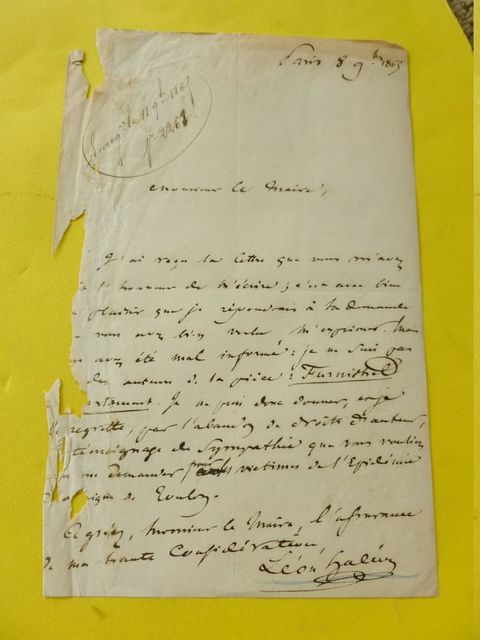 Paris 8 9bre 1865
Enreg. le 11 9bre 1865
N° 2262
Monsieur le Maire,
J'ai reçu la lettre que vous m'avez
l'honneur de m'écrire ; c'est avec bien
plaisir que je répondrais à la demande
vous avez bien voulu m'exprimer. Mais
avez été mal informé : je ne suis pas
des auteurs de la pièce : Furnished
artament. Je ne puis donc donner, et je
regrette, par l'abandon de droits d'auteur,
témoignage de Sympathie que vous voulez
me demander pour les victimes de l'Epidémie
de Toulon.
Agréez, Monsieur le Maire, l'assurance
de ma haute Considération,
Léon Halévy